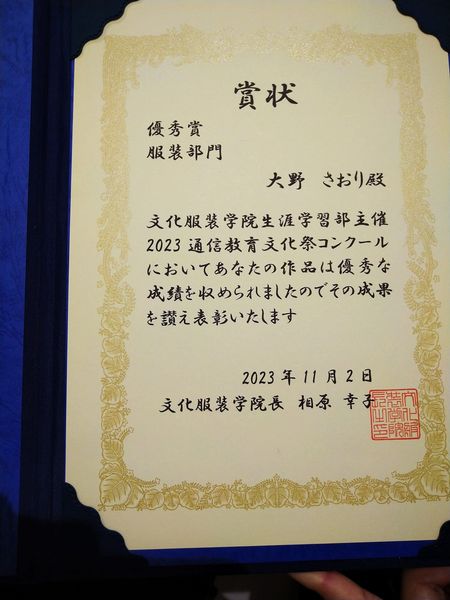 賞状
優秀賞
服装部門
大野 さおり殿
文化服装学院生涯学習部主催
2023通信教育文化祭コンクール
においてあなたの作品は優秀な
成績を収められましたのでその成果
を讃え表彰いたします
2023年11月2日
文化服装学院長 相原 幸子